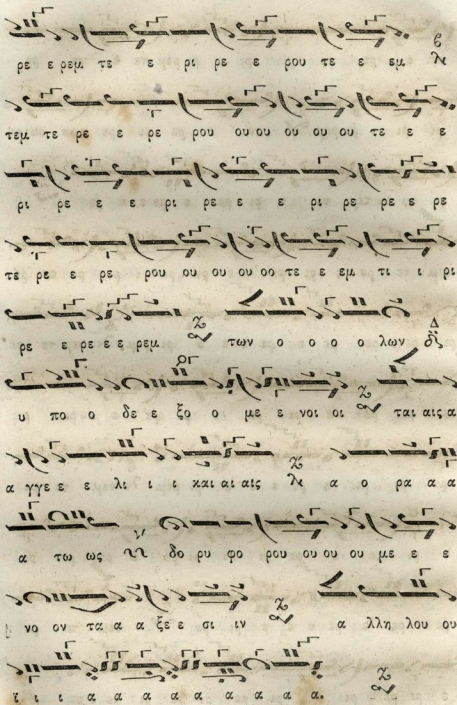 ρε ε ρεμ τε ε ρι ρε ε ρου τε ε εμ
τεμ τε ρε ε ρε ρου ου ου ου ου ου τε ε ε
ρι ρε ε ε ε ρι ρε ε ε ρι ρε ρε ε ρε
τε ρε ε ρε ρου ου ου ου οο τε ε εμ τι ι ρι
ρε ε ρε ε ε ρεμ των ο ο ο ο λων
υ πο ο δε ε ξο ο με ε νοι οι ται αις α
α γγε ε ε λι ι ι και αι αις α ο ρα α α
α τω ως δο ρυ φο ρου ου ου ου με ε ε
νο ον τα α α ξε ε σι ιν α λλη λου ου
ϊ ι ι α α α α α α α α α.